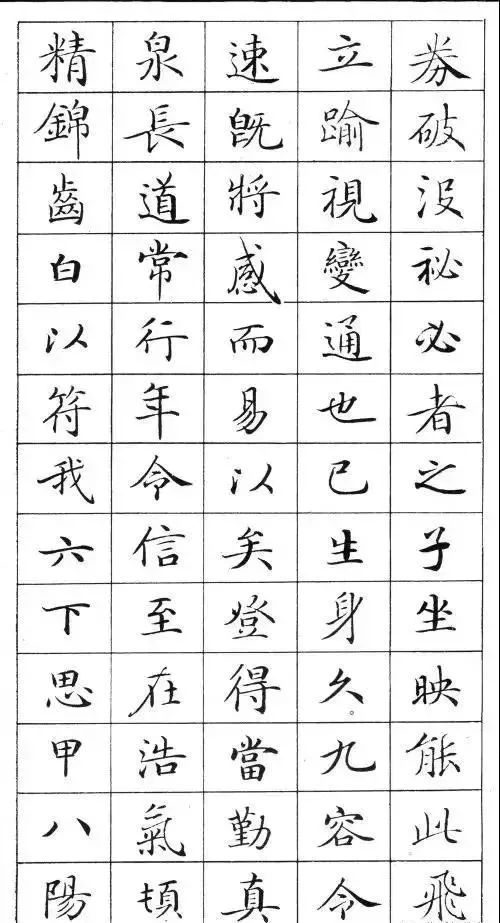 券破沒祕必者之子坐映能此飛
立踰視變通也已生身久九容令
速既將感而易以矣登得當勤真
泉長道常行年令信至在浩氣頓
精錦齒白以符我六下思甲八陽